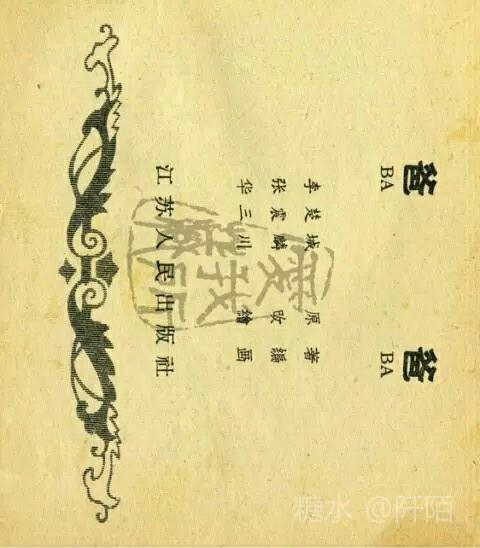 爸 爸
BA BA
李楚城 原著
张震麟 改编
华三川 繪画
江苏人民出版社
糖水 @阡陌